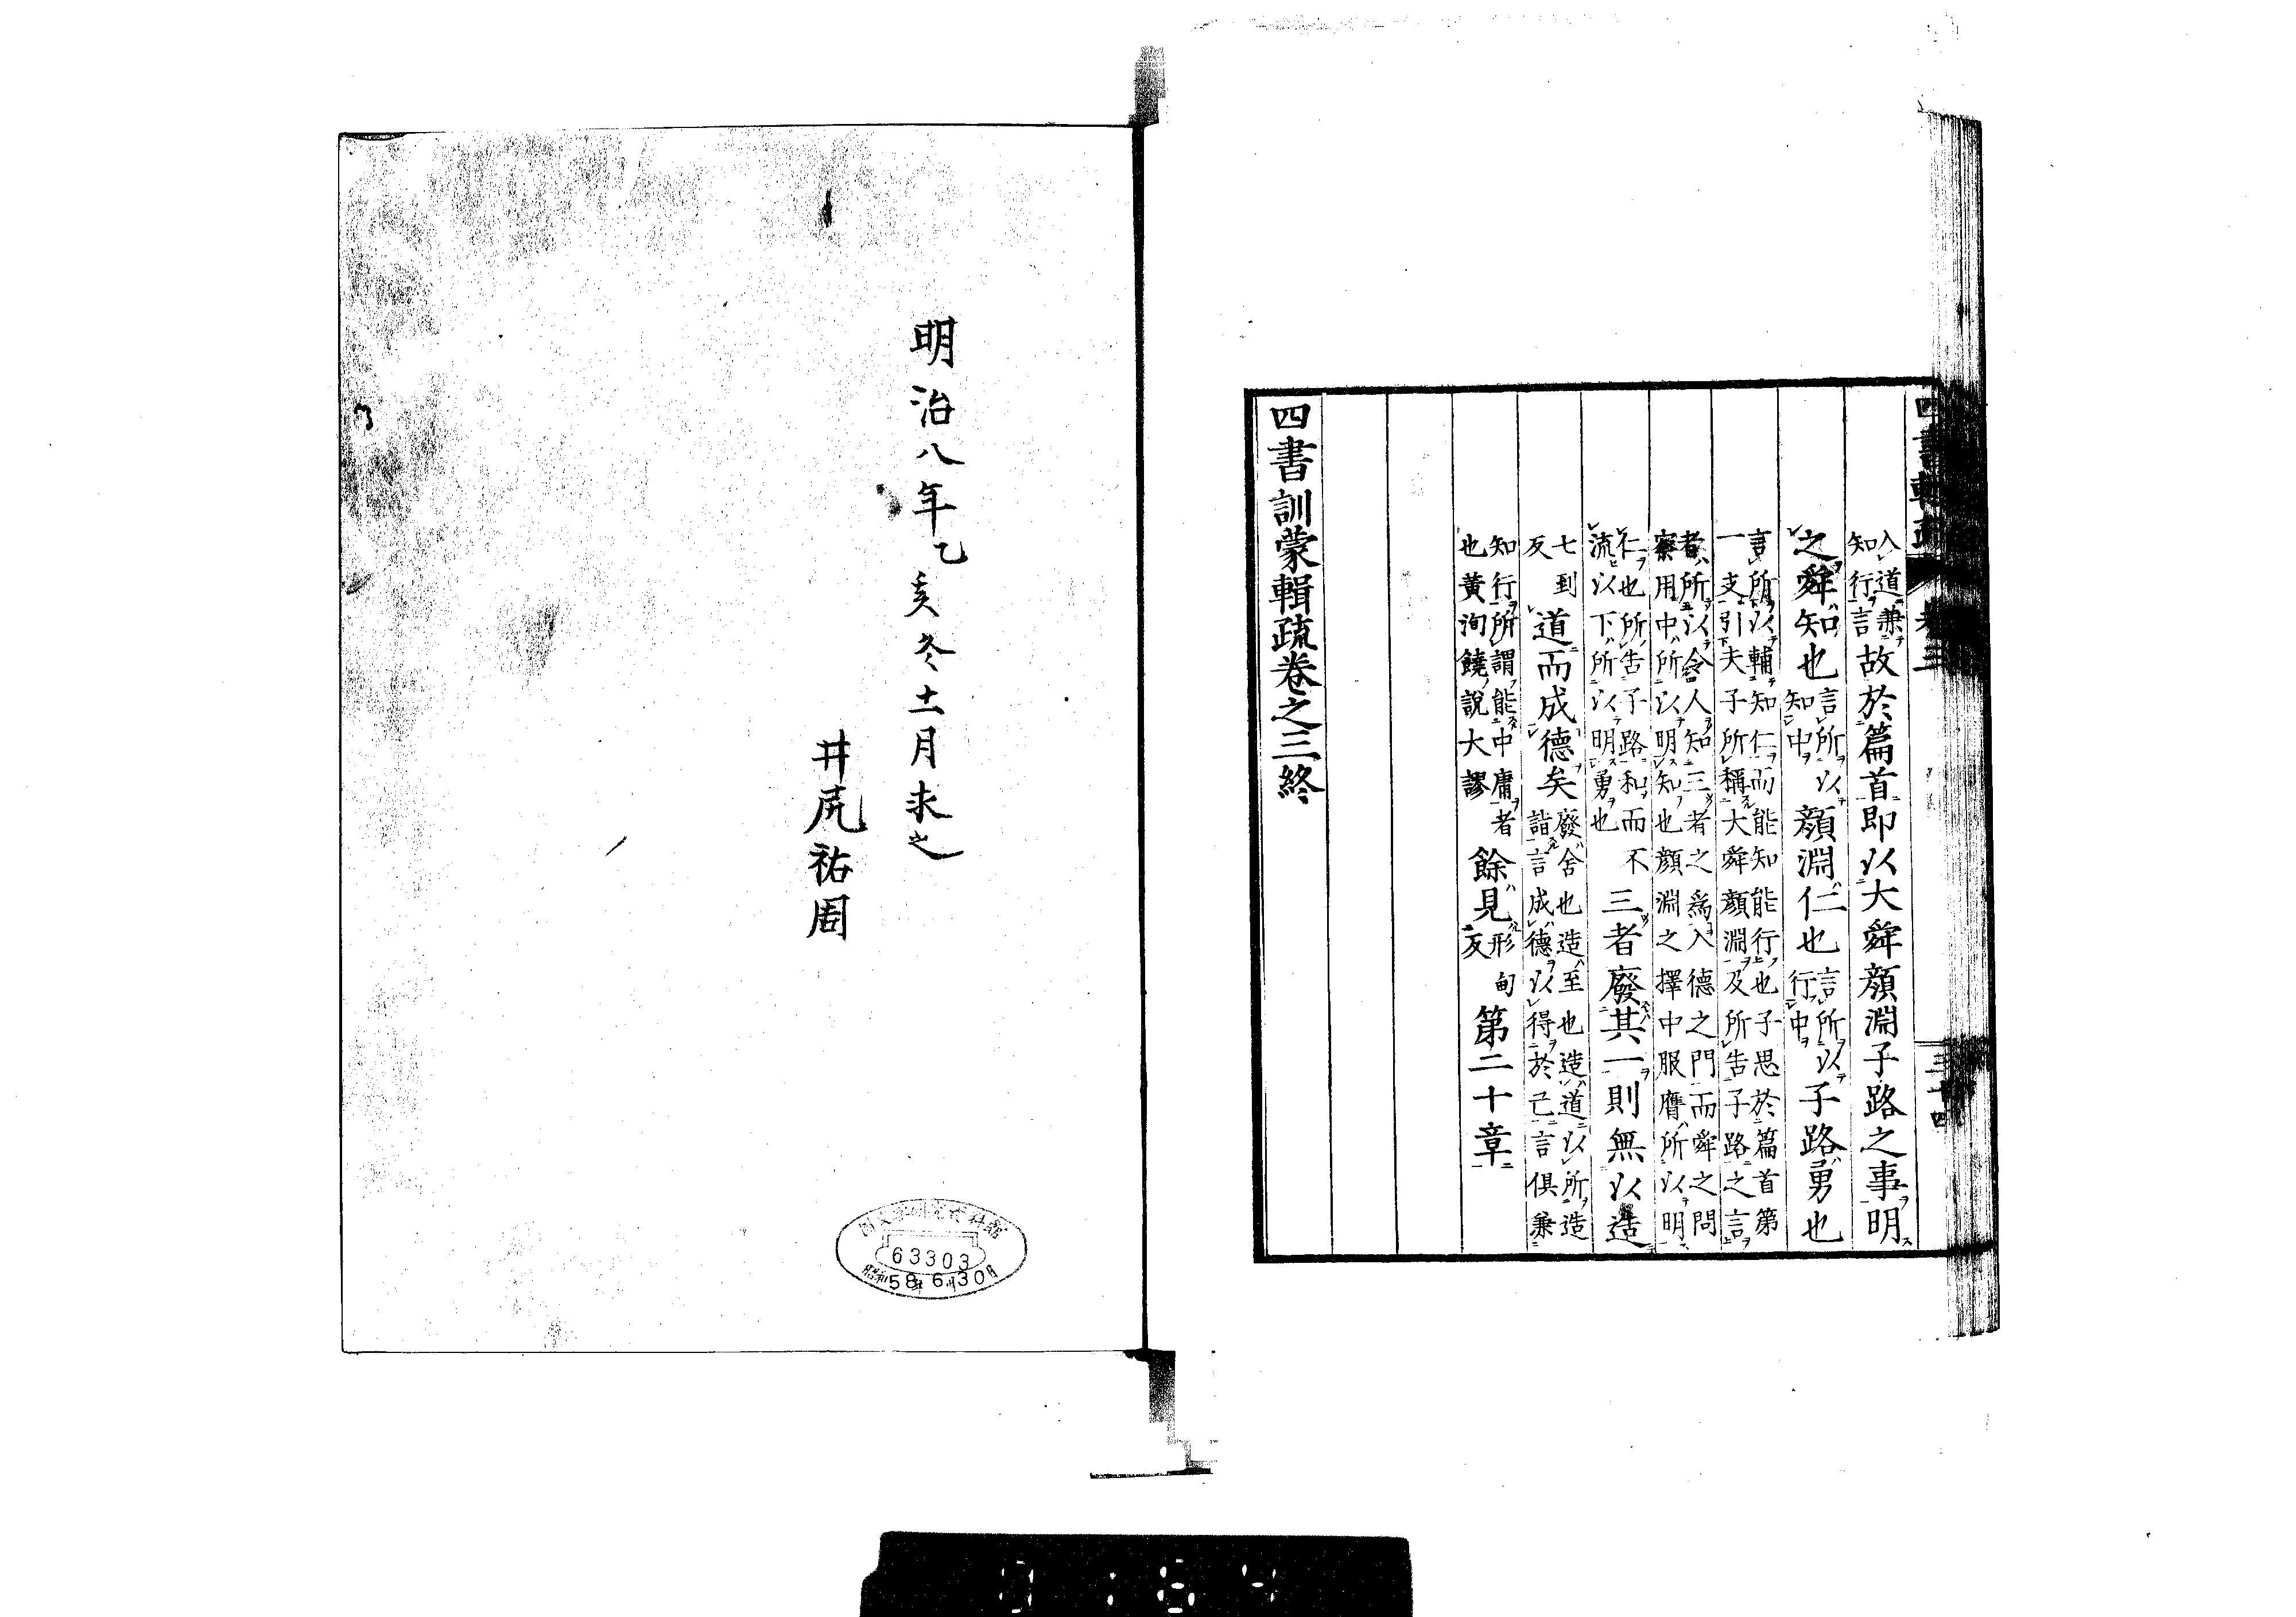 入道兼
知行言
故於篇首即以大舜顔淵子路之事明
之舜知也
言所以
知中
顔淵仁也
言所以
行中
子路勇也
言所以輔知仁而能知能行也子思於篇首第
一支引夫子所稱大舜顔淵及所告子路之言
者所以令人知三者之為入德之門而舜之問
察用中所以明知也顔淵之擇中服膺所以明
仁也所告子路和而不
流以下所以明勇也
三者廢其一則無以造
七到
反
道而成德矣
廢舍也造至也造道以所造
詣言成德以得於己言俱兼
知行所謂能中庸者
也黃洵饒說大謬
餘見
形甸
反
第二十章
四書訓蒙輯疏卷之三終
明治八年乙亥冬十一月求之
井尻祐周
63303
昭和58年6月30日